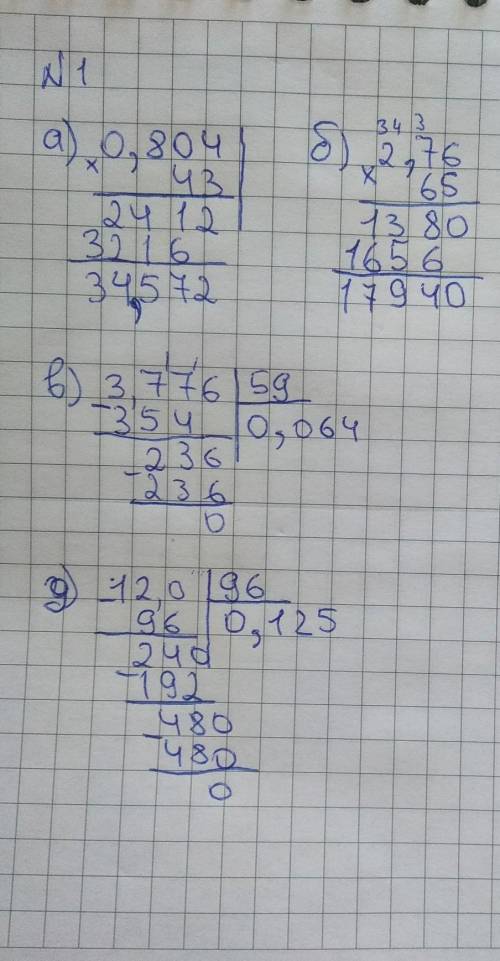 №1
а) 0,804
× 43
2412
3216
34,572
б) 34 3
2,76
× 65
1380
1656
17940
в) 3,776 | 59
- 354 | 0,064
- 236
236
0
д) - 12,0 | 96
96 | 0,125
240
- 192
- 480
480
0